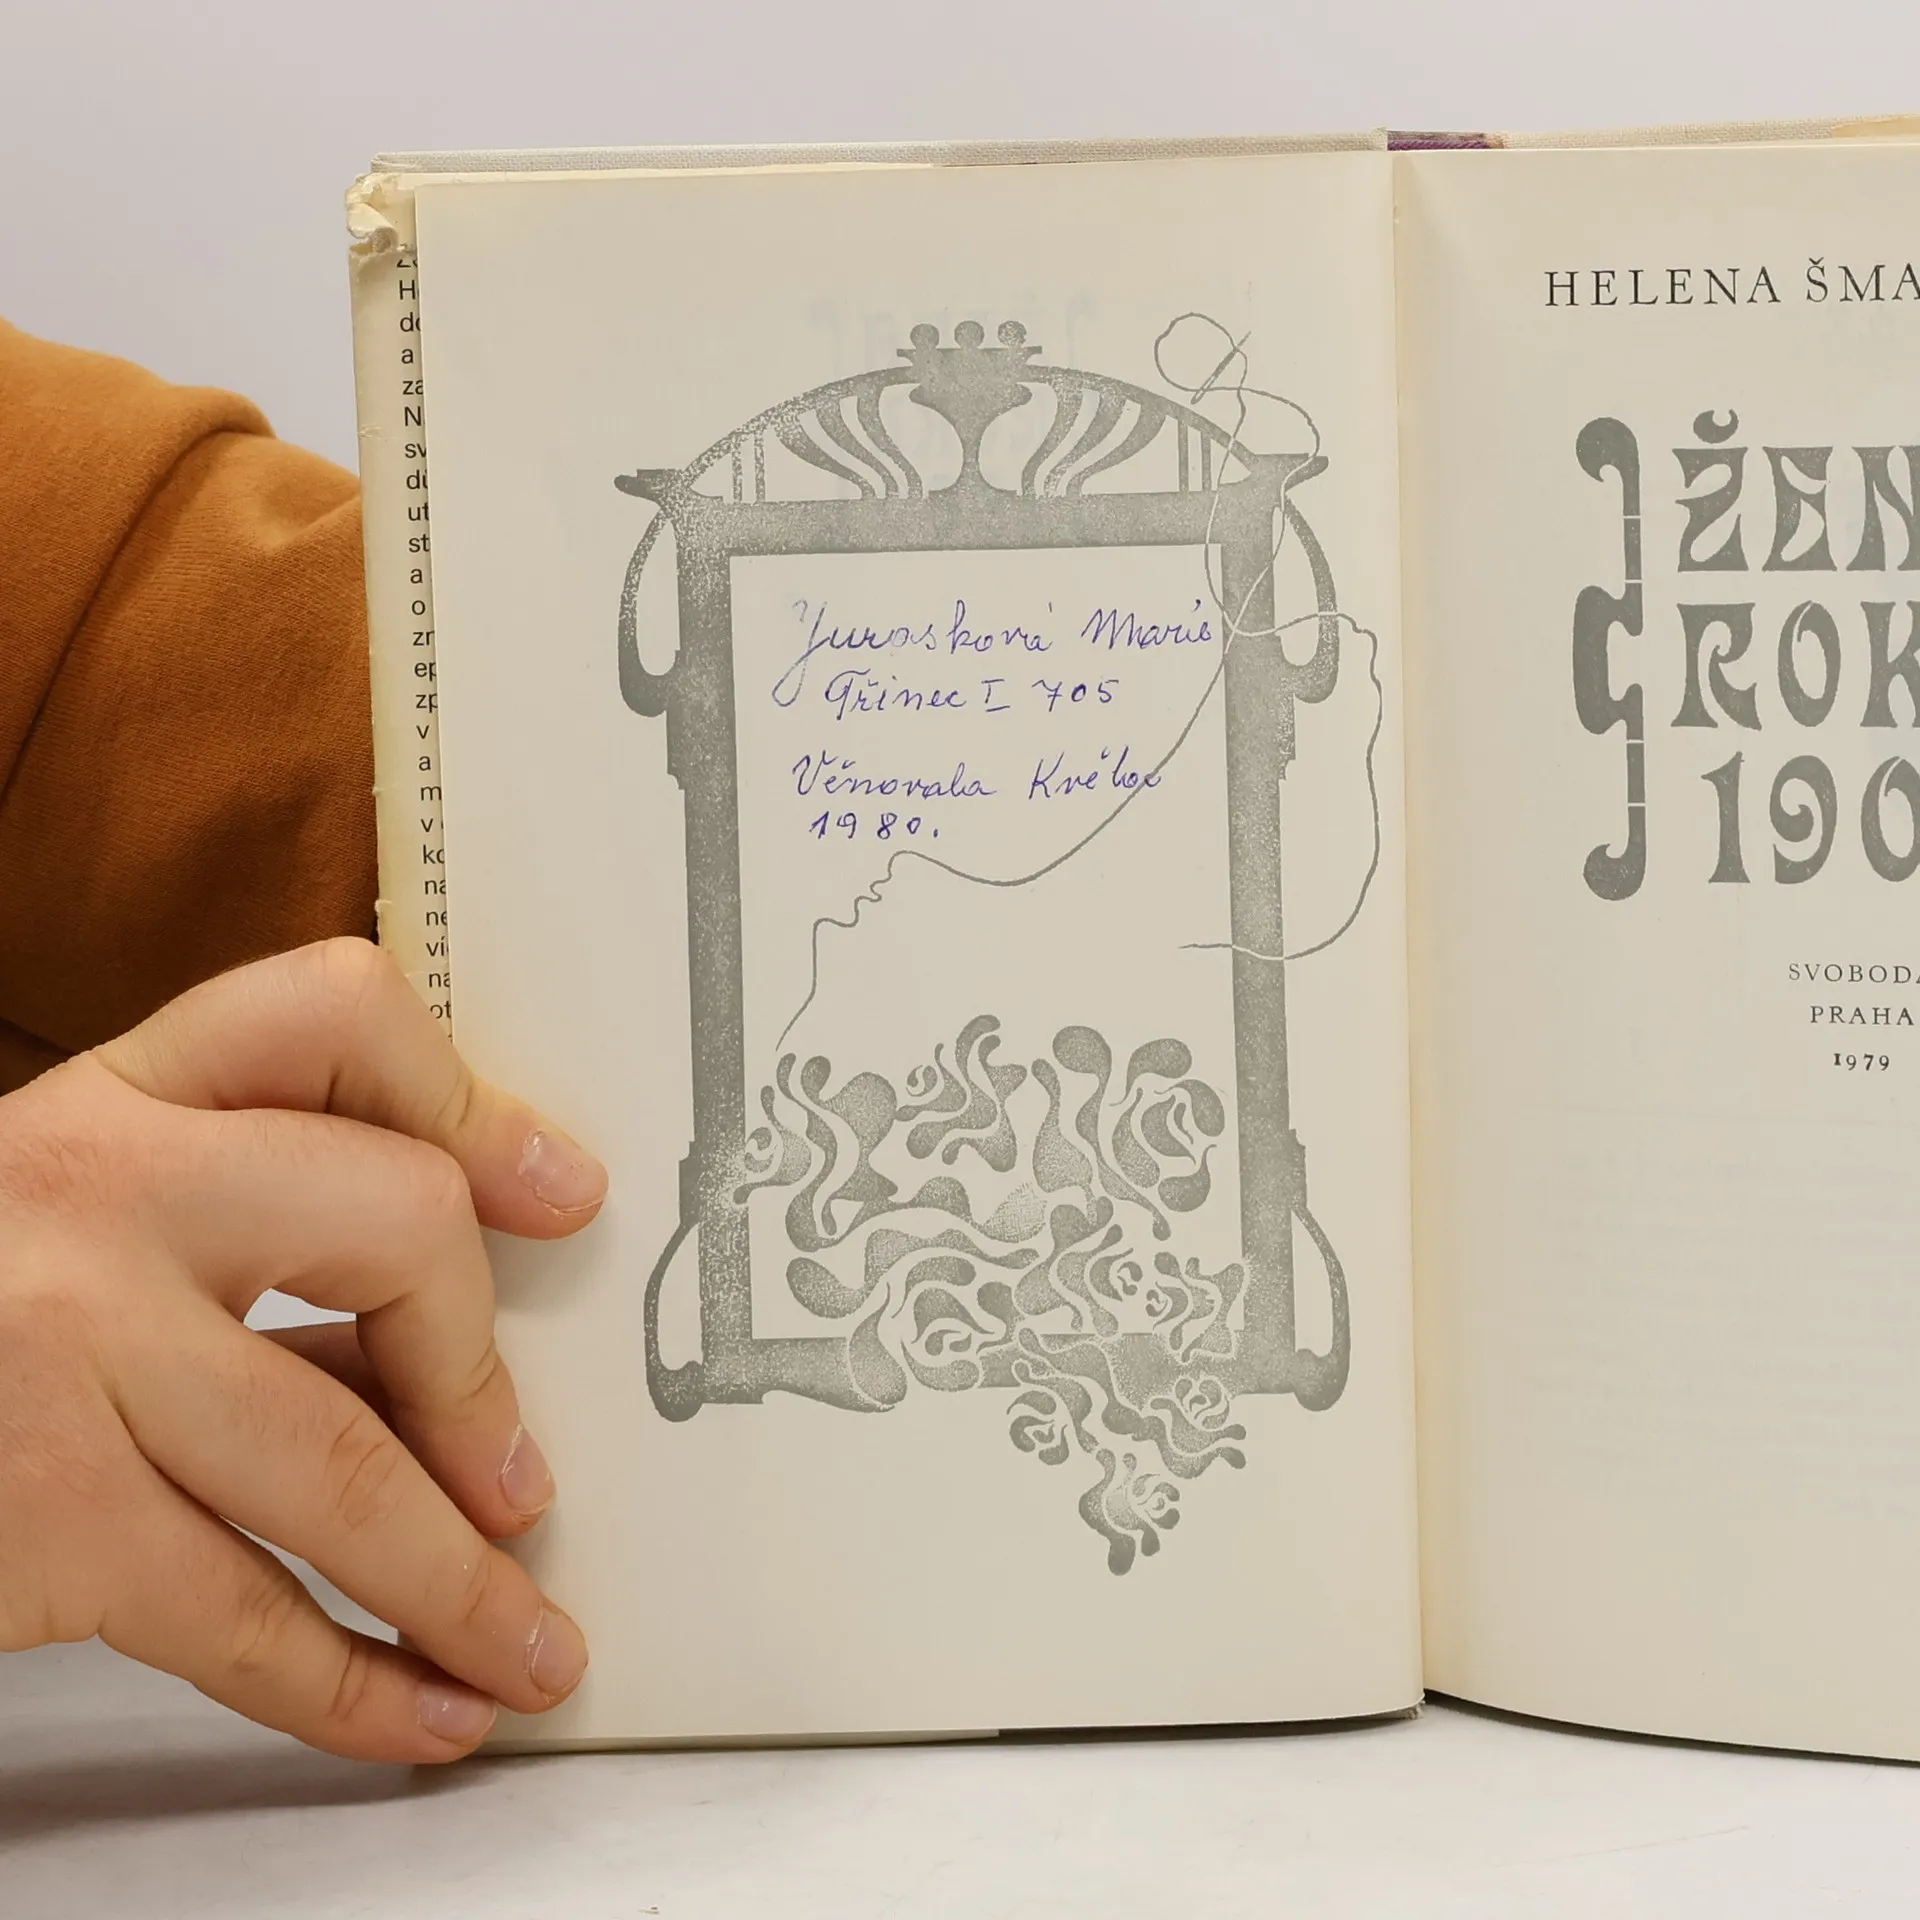 Ho
do
a
za
N
sv
dů
ut
st
a
o
zn
ep
zp
v
a
m
v
ko
na
ne
ví
na
ot
Jurasková Marie
Třinec I 705
Věnovala Květa
1980.
HELENA ŠMA
ŽEN
ROK
190
SVOBODA
PRAHA
1979